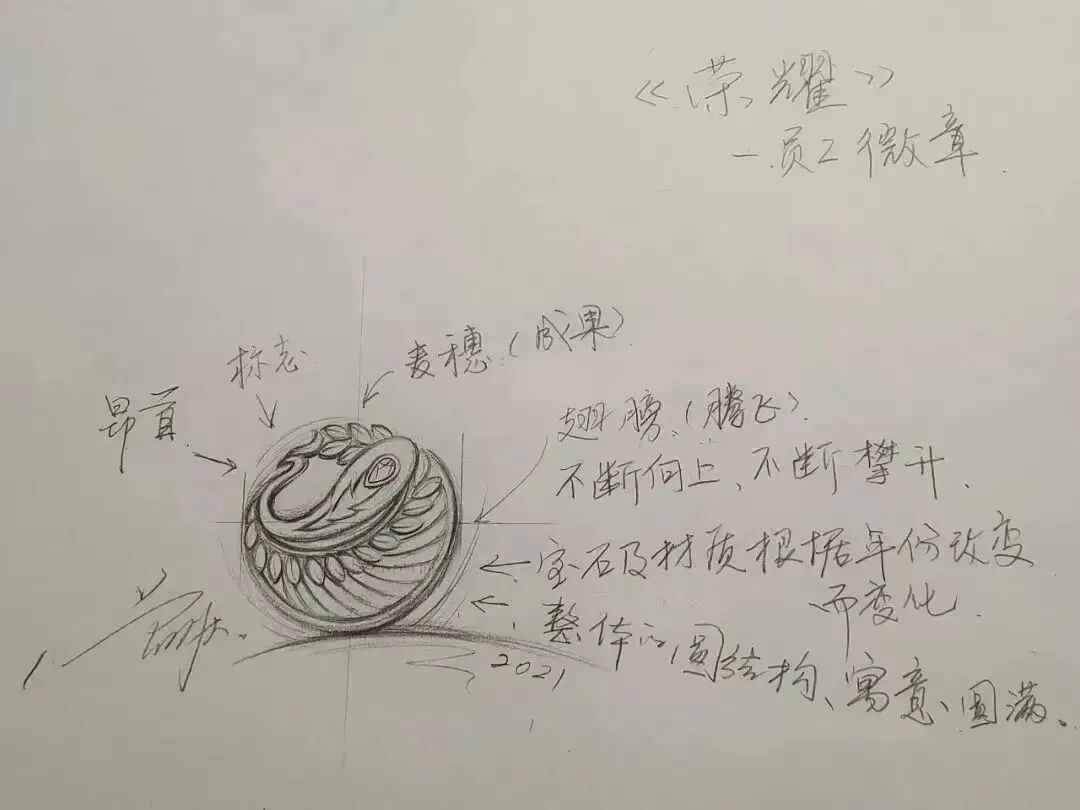 《荣耀》
一员工微章
标志
麦穗(成果)
昂首
翅膀(腾飞)
不断向上、不断攀升.
宝石及材质根据年份改变
而变化.
整体的圆结构、寓意、圆满、
2021